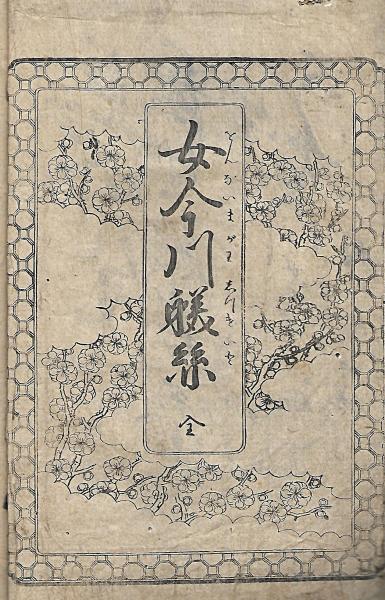 をんないまがわしつけいと
女今川躾絲 全